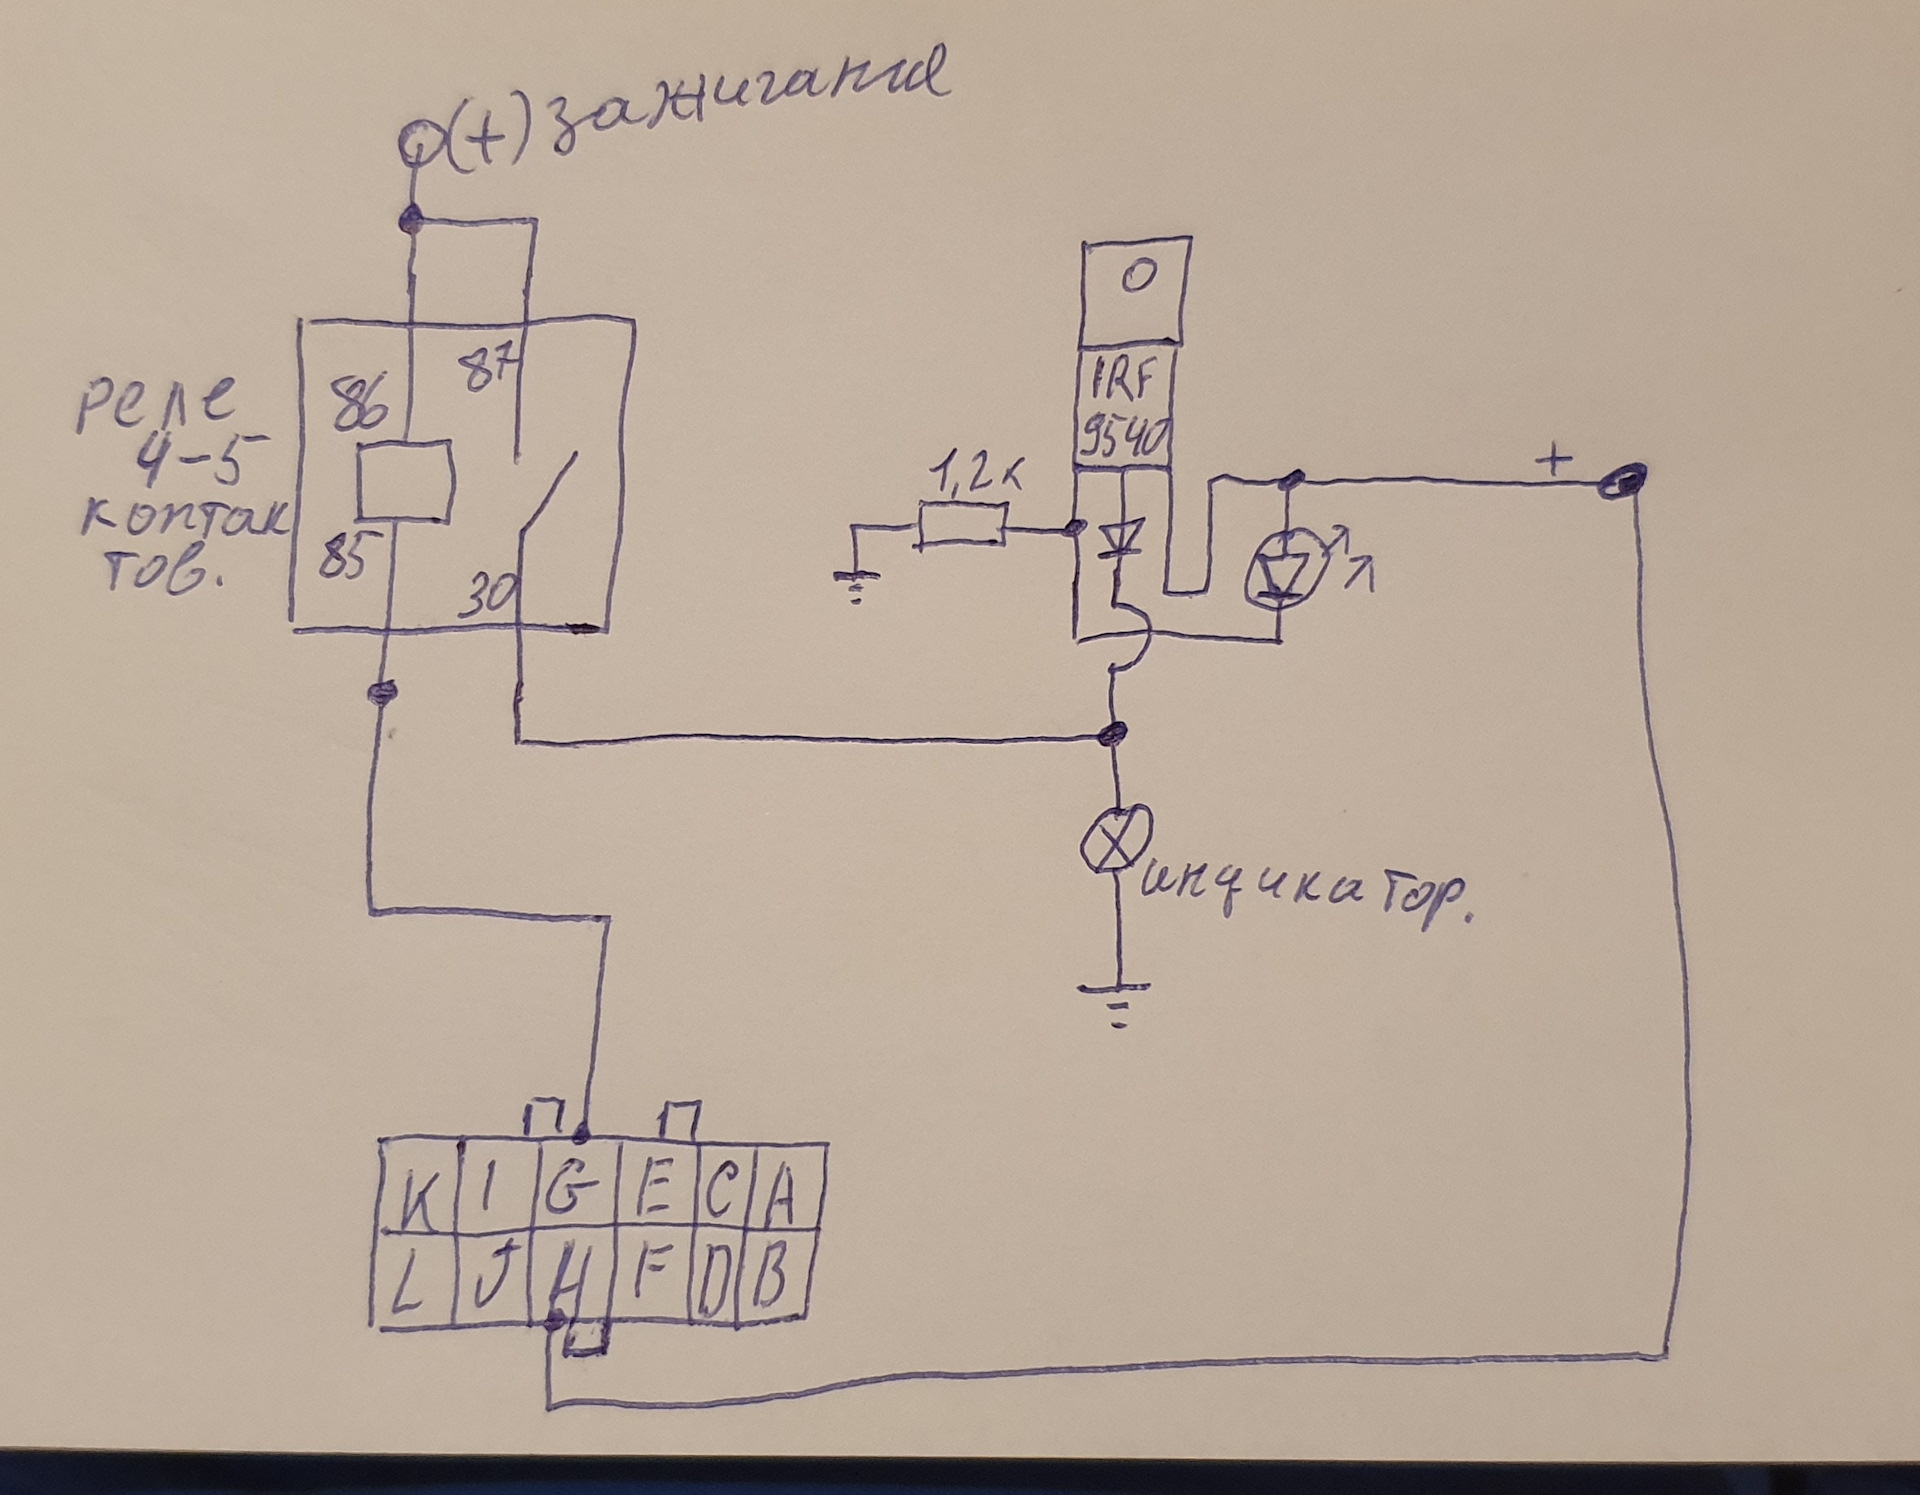 (+) зажигания
86
87
реле
4-5
контак
тов.
85
30
IRF
9540
1,2к
+
индикатор.
K I G E C A
L J H F D B